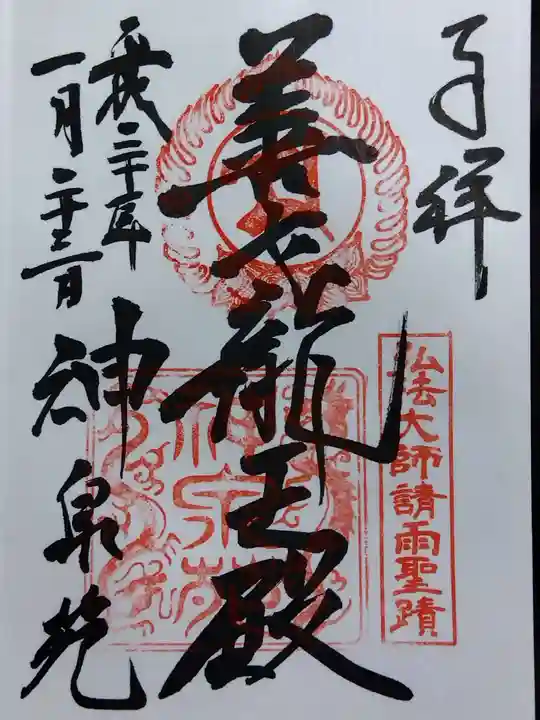 奉拝
弘法大師請雨聖蹟
善女龍王殿
平成三十年
一月二十三日
神泉苑
神泉苑